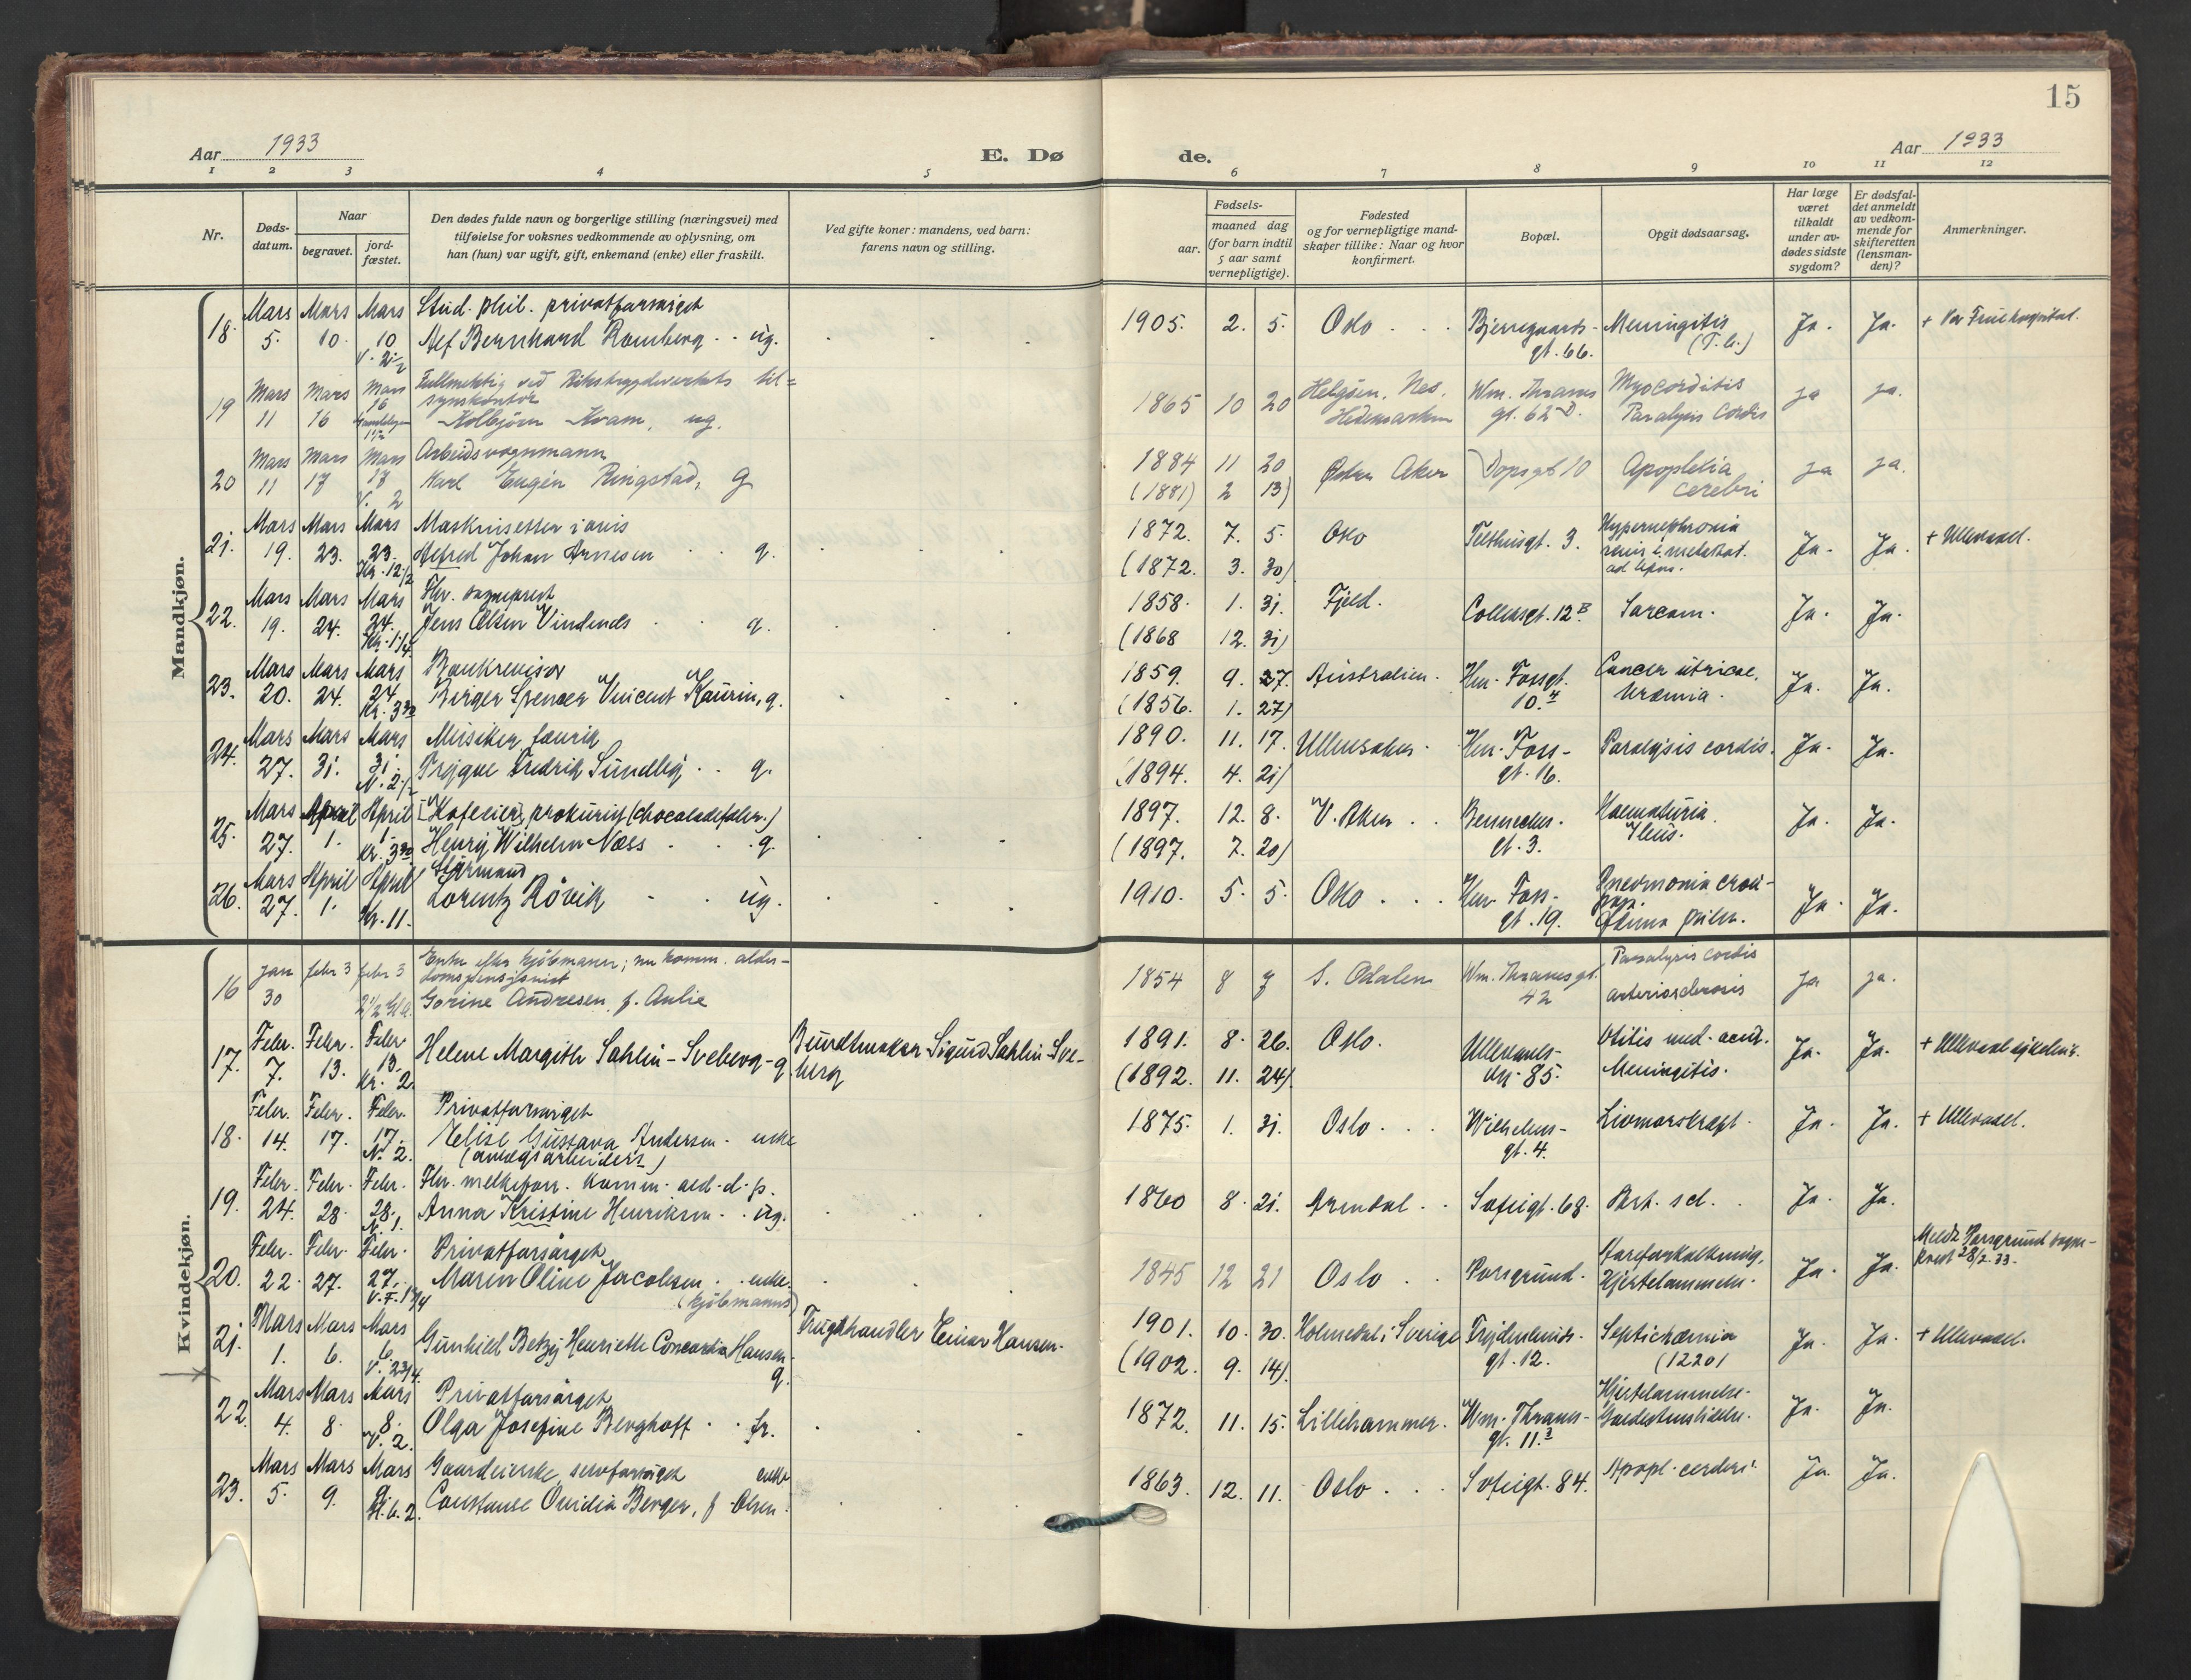 15
Aar 1933
E. Dø
de.
Aar 1933
1 2 3 4 5 6 7 8 9 10 11 12
Nr.
Døds-
datum.
Naar
begravet.
jord-
fæstet.
Den dødes fulde navn og borgerlige stilling (næringsvei) med
tilføielse for voksnes vedkommende av oplysning, om
han (hun) var ugift, gift, enkemand (enke) eller fraskilt.
Ved gifte koner: mandens, ved barn:
farens navn og stilling.
Fødsels-
aar.
maaned dag
(for barn indtil
5 aar samt
vernepligtige).
Fødested
og for vernepligtige mand-
skaper tillike: Naar og hvor
konfirmert.
Bopæl.
Opgit dødsaarsag.
Har læge
været
tilkaldt
under av-
dødes sidste
sygdom?
Er dødsfal-
det anmeldt
av vedkom-
mende for
skifteretten
(lensman-
den)?
Anmerkninger.
Mandkjøn.
18. Mars 5. Mars 10. Mars 10 Stud. phil. privatforsörget
Alf Bernhard Romberg ug. 1905. 2. 5. Oslo Bjerregaards-
gt. 66. Meningitis
(T.b.) Ja. Ja. + Vor Frue hospital.
19 Mars 11 Mars 16 Mars 16 Fullmektig ved Rikstrygdeverkets til=
synskontor
Kolbjörn Kvam, ug. 1865 10 20 Helgöen, Nes,
Hedemarken Wm. Thranes
gt. 62 D. Myocarditis
Paralysis Cordis ja ja.
20 Mars 11 Mars 17 Mars 17 V. 2 Arbeidsvognmann
Karl Eugen Ringstad, g 1884 11 20
(1881) 2 13) Østre Aker Dopsgt 10 Apoplexia
cerebri ja ja.
21. Mars 19. Mars 23. Mars 23. Maskinsetter i avis
Alfred Johan Arnesen g. 1872. 7. 5.
(1872. 3. 30) Oslo Telthusgt. 3. Hypernephroma
renis Ja. Ja. + Ullevaal.
22. Mars 19. Mars 24. Mars 24. Fhv. sogneprest
Jens Olsen Vindenes g. 1858. 1. 31.
(1868 12. 31) Fjeld. Colletsgt. 12 B. Sarcom. Ja. Ja.
23. Mars 20. Mars 24. Mars 24 Kr. 3 30 Bankrevisor
Birger Spencer Vincent Kaurin, g. 1859. 9. 27.
(1856. 1. 27) Australien. Hen. Fossgt.
10. Cancer
Uræmia. Ja. Ja.
24. Mars 27. Mars 31. Mars 31 Musiker
Trygve Fredrik Sundby g. 1890. 11. 17.
(1894. 4. 21) Ullensaker. Hen. Foss-
gt. 16. Paralysis cordis. Ja. Ja.
25. Mars 27. April 1. April 1. Kr. 3 30 [Kafeeier], prokurist (chocoladefabr.)
Henry Wilhelm Næss g. 1897. 12. 8.
(1897. 7. 20) V. Aker Bennechs.
gt. 3. Haematuria.
Ileus. Ja. Ja.
26. Mars 27. April 1. April Kr. 11. Styrmand
Lorentz Rövik ug. 1910. 5. 5. Oslo Hen. Foss-
gt. 19. Pneumonia crou-
posa. Ja. Ja.
Kvindekjøn.
16 jan 30 febr 3 febr 3 Enke efter kjöbmann; nu komm. alder-
domspensjonist
Gorine Andresen f. Aulie 1854 8 7 S. Odalen Wm. Thranesgt.
42 Paralysis cordis
arteriosclerosis ja ja.
17. Febr. 7. Febr. 13. Febr 13. Kr. 2 Helene Margith Sahlin-Sveberg g. Bundtmaker Sigurd Sahlin Sve-
berg 1891. 8. 26.
(1892. 11. 24). Oslo. Ullevaals-
vn. 85. Otitis med. acut.
Meningitis. Ja. Ja. + Ullevaal sykehus.
18. Febr. 14. Febr. 17. Febr. 17. N. 2. Privatforsørget
Elise Gustava Andersen enke
(anlegsarbeiders) 1875. 1. 31. Oslo Wilhelms-
gt. 4. Livmorskræft. Ja. Ja. + Ullevaal.
19. Febr. 24. Febr. 28. Febr. 28. N. 1. Fhv. melkeforr. komm. ald.d.p.
Anna Kristine Henriksen ug. 1860 8. 21. Arendal Sofiegt. 68. Art. scl. Ja. Ja.
20. Febr. 22. Febr. 27. Febr. 27. Privatforsørget
Maren Oline Jacobsen enke.
(kjöbmanns) 1845 12 21 Oslo Porsgrund. Aareforkalkning.
Hjertelammelse. Ja. Ja. Meldt Porsgrund sogne-
prest 28/2. 33.
21. Mars 1. Mars 6. Mars 6. V. 2 3/4. Gunhild Betzy Henriette Concordia Hansen
g. Frugthandler Einar Hansen. 1901. 10. 30.
(1902. 9. 14). Holmedal i Sverige Frydenlunds-
gt. 12. Septichæmia
(1220) Ja. Ja. + Ullevaal.
22. Mars 4. Mars 8. Mars 8. V. 2. Privatforsørget
Olga Josefine Berghoff fr. 1872. 11. 15. Lillehammer. Wm. Thranes-
gt. 11. Hjertelammelse.
Galdestenslidelse. Ja. Ja.
23. Mars 5. Mars 9. Mars 9. Gaardeierske, selvforsørget enke
Constance Ovidia Berger, f. Olsen. 1863. 12. 11. Oslo Sofiegt. 84. Apopl. cerebri. Ja. Ja.